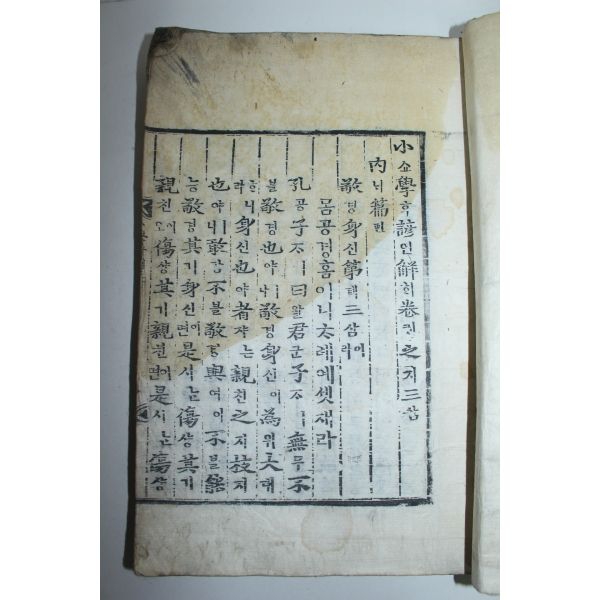 小쇼學ᄒᆞᆨ諺언解ᄒᆡ卷권之지三삼
內ᄂᆡ篇편
敬경身신第뎨三삼이라
몸공경홈이니ᄎᆞ례예셋재라
孔공子ᄌᆞㅣ曰왈君군子ᄌᆞㅣ無무不
불敬경也야ㅣ나敬경身신이爲위大대
ᄒᆞ니라身신也야者쟈ᄂᆞᆫ親친之지枝지
也야ㅣ니敢감不블敬경與여아不블能
능敬경其기身신이면是시ᄂᆞᆫ傷샹其기
親친이오傷샹其기親친이면是시ᄂᆞᆫ傷샹